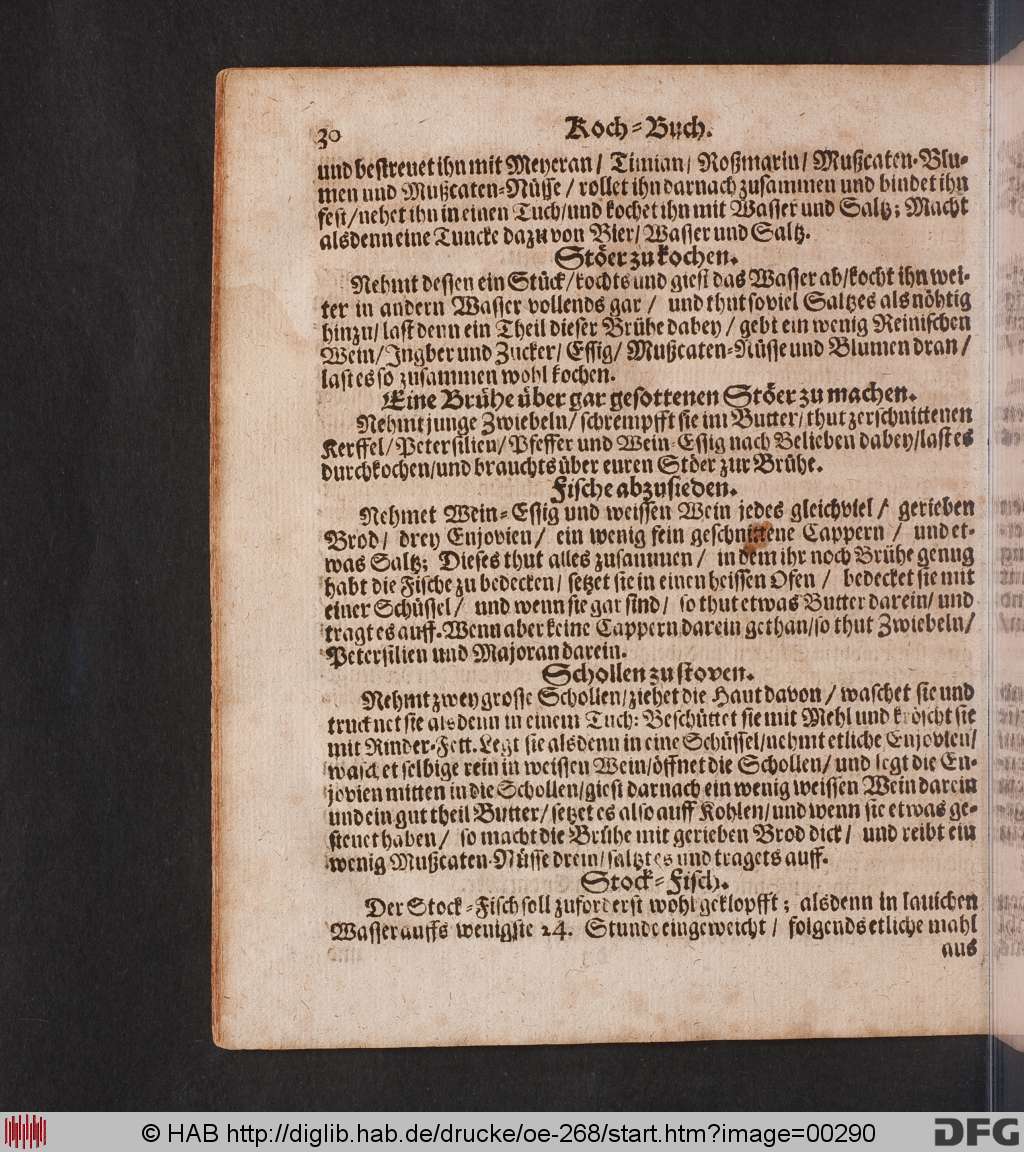 30 Koch-Buch.
und bestreuet ihn mit Meyeran/ Timian/ Roßmarin/ Mußcaten-Blu-
men und Mußcaten-Nüsse/ rollet ihn darnach zusammen und bindet ihn
fest/nehet ihn in einen Tuch/und kochet ihn mit Wasser und Saltz; Macht
alsdenn eine Tuncke dazu von Bier/ Wasser und Saltz.
Stöer zu kochen.
Nehmt dessen ein Stück/kochts und giest das Wasser ab/kocht ihn wei-
ter in andern Wasser vollends gar/ und thut soviel Saltzes als nöhtig
hinzu/ last denn ein Theil dieser Brühe dabey/ gebt ein wenig Reinischen
Wein/ Ingber und Zucker/ Essig/ Mußcaten-Nüsse und Blumen dran/
last es so zusammen wohl kochen.
Eine Brühe über gar gesottenen Stöer zu machen.
Nehmt junge Zwiebeln/ schrempfft sie im Butter/ thut zerschnittenen
Kerffel/ Petersilien/ Pfeffer und Wein-Essig nach Belieben dabey/last es
durchkochen/und brauchts über euren Stöer zur Brühe.
Fische abzusieden.
Nehmet Wein-Essig und weissen Wein jedes gleichviel/ gerieben
Brod/ drey Enjovien/ ein wenig fein geschnittene Cappern/ und et-
was Saltz; Dieses thut alles zusammen/ in dem ihr noch Brühe genug
habt die Fische zu bedecken/ setzet sie in einen heissen Ofen/ bedecket sie mit
einer Schüssel/ und wenn sie gar sind/ so thut etwas Butter darein/ und
tragt es auff. Wenn aber keine Cappern darein gethan/so thut Zwiebeln/
Petersilien und Majoran darein.
Schollen zu stoven.
Nehmt zwey grosse Schollen/ziehet die Haut davon/ waschet sie und
trucknet sie alsdenn in einem Tuch: Beschüttet sie mit Mehl und kröscht sie
mit Rinder-Fett. Legt sie alsdenn in eine Schüssel/nehmt etliche Enjovien/
waschet selbige rein in weissen Wein/öffnet die Schollen/ und legt die En-
jovien mitten in die Schollen/giest darnach ein wenig weissen Wein darein
und ein gut theil Butter/ setzet es also auff Kohlen/und wenn sie etwas ge-
stenet haben/ so macht die Brühe mit gerieben Brod dick/ und reibt ein
wenig Mußcaten-Nüsse drein/ saltzt es und tragets auff.
Stock-Fisch.
Der Stock-Fisch soll zuforderst wohl geklopfft; alsdenn in laulichen
Wasser auffs wenigste 24. Stunde eingeweicht/ folgends etliche mahl
aus
© HAB http://diglib.hab.de/drucke/oe-268/start.htm?image=00290
DFG